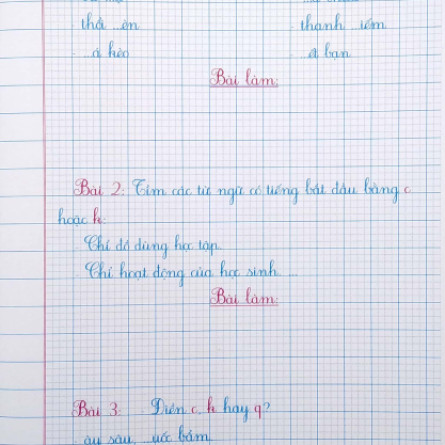 thả ...ên thanh ...iếm
...á kho ...á bạn
Bài làm:
Bài 2: Tìm các từ ngữ có tiếng bắt đầu bằng c
hoặc k:
Chỉ đồ dùng học tập
Chỉ hoạt động của học sinh ...
Bài làm:
Bài 3: Điền c, k hay q?
...âu sâu, ...uốc bám